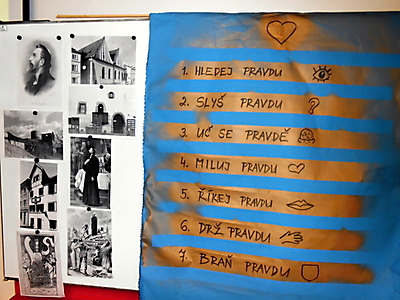 1. HLEDEJ PRAVDU
2. SLYŠ PRAVDU
3. UČ SE PRAVDĚ
4. MILUJ PRAVDU
5. ŘÍKEJ PRAVDU
6. DRŽ PRAVDU
7. BRAŇ PRAVDU